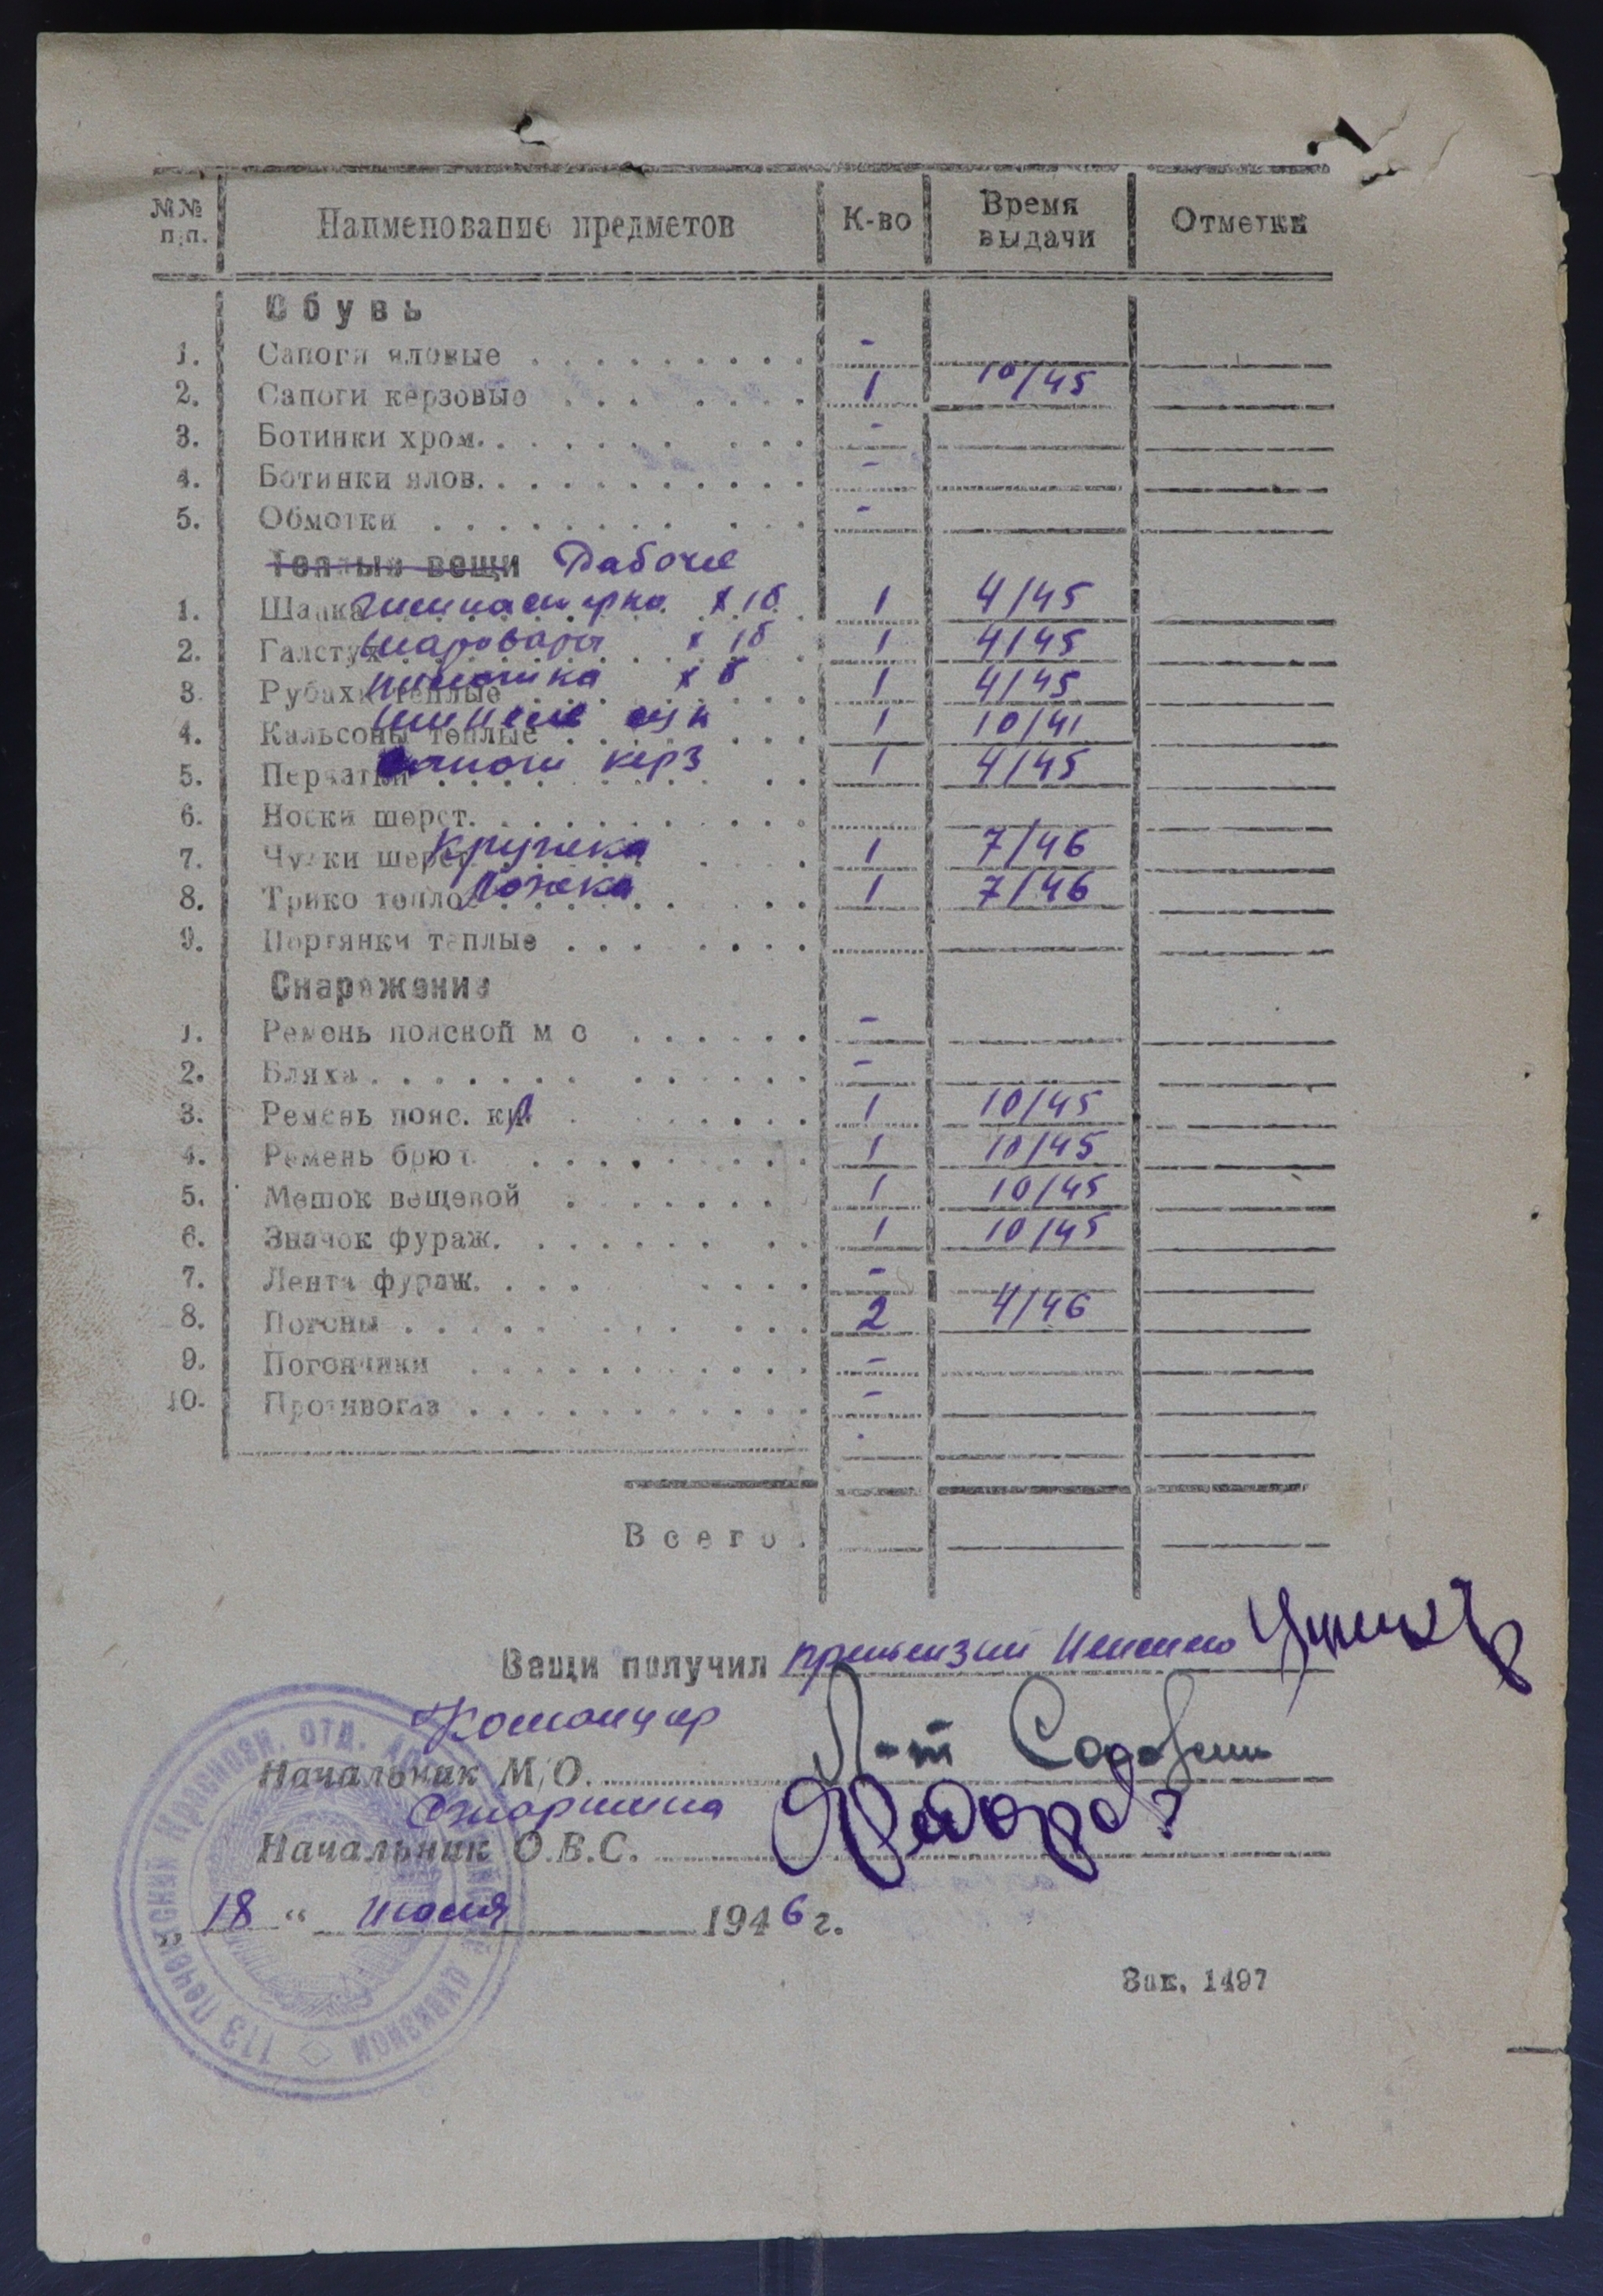 №№ п.п. Наименование предметов К-во Время выдачи Отметки
Обувь
1. Сапоги яловые -
2. Сапоги керзовые 1 10/45
3. Ботинки хром. -
4. Ботинки ялов. -
5. Обмотки -
Теплые вещи Рабочие
1. Шапка гимнастерка х/б 1 4/45
2. Галстук шаровары х/б 1 4/45
3. Рубахи теплые пилотка х/б 1 4/45
4. Кальсоны теплые шинель сук 1 10/41
5. Перчатки сапоги керз 1 4/45
6. Носки шерст.
7. Чулки шерст. Кружка 1 7/46
8. Трико теплое Ложка 1 7/46
9. Портянки теплые
Снаряжение
1. Ремень поясной м с -
2. Бляха -
3. Ремень пояс. 1 10/45
4. Ремень брюч. 1 10/45
5. Мешок вещевой 1 10/45
6. Значок фураж. 1 10/45
7. Лента фураж. -
8. Погоны 2 4/46
9. Погончики -
10. Противогаз -
Всего
Вещи получил претензий не имею
Командир
Начальник М.О. Л-т
Старшина
Начальник О.В.С. Федоров
„ 18 “ июля 1946 г.
113 Печенгский Краснозн. отд.
Зак. 1497